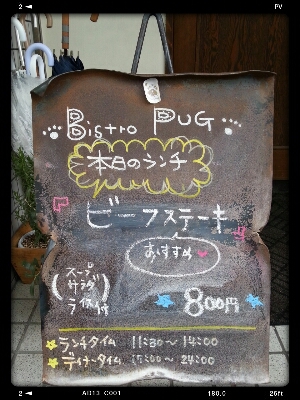 2
PV
Bistro PUG
本日のランチ
ビーフステーキ
おすすめ
(スープ
サラダ
ライス付)
800円
ランチタイム 11:30〜14:00
ディナータイム 17:00〜24:00
2
AD13 C001
180.0
26ft